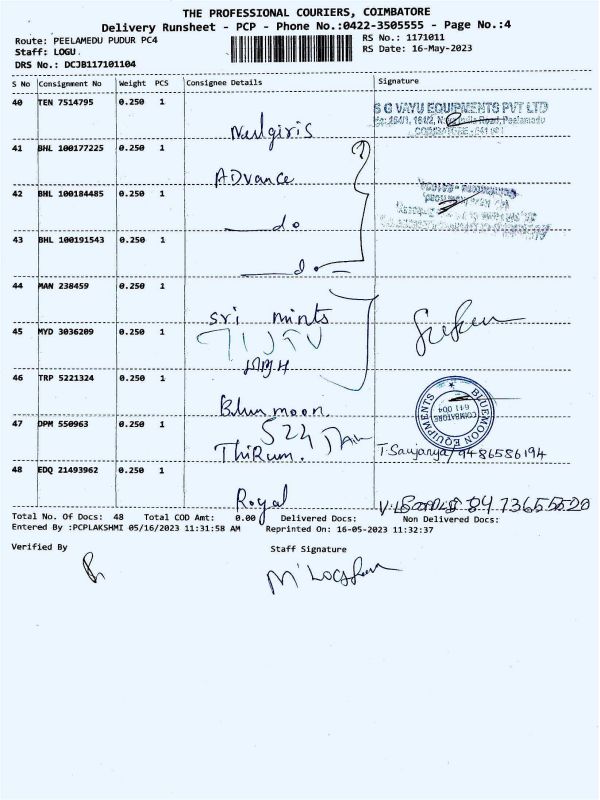 THE PROFESSIONAL COURIERS, COIMBATORE
Delivery Runsheet - PCP - Phone No.:0422-3505555 - Page No.:4
Route: PEELAMEDU PUDUR PC4
RS No.: 1171011
Staff: LOGU
RS Date: 16-May-2023
DRS No.: DCJB117101104
S No Consignment No Weight PCS Consignee Details Signature
40 TEN 7514795 0.250 1
S G VAYU EQUIPMENTS PVT LTD
Peelamedu
COIMBATORE
Neelgiris
41 BHL 100177225 0.250 1
ADvance
42 BHL 100184485 0.250 1
do
43 BHL 100191543 0.250 1
do
44 MAN 238459 0.250 1
sri mints
45 MYD 3036209 0.250 1
46 TRP 5221324 0.250 1
Bluemoon
BLUEMOON EQUIPMENTS
COIMBATORE
641 004
47 DPM 550963 0.250 1
524
ThiRum.
T. Saujanya/9486586194
48 EDQ 21493962 0.250 1
Royal
Total No. Of Docs: 48 Total COD Amt: 0.00 Delivered Docs: Non Delivered Docs:
Entered By :PCPLAKSHMI 05/16/2023 11:31:58 AM Reprinted On: 16-05-2023 11:32:37
Verified By Staff Signature